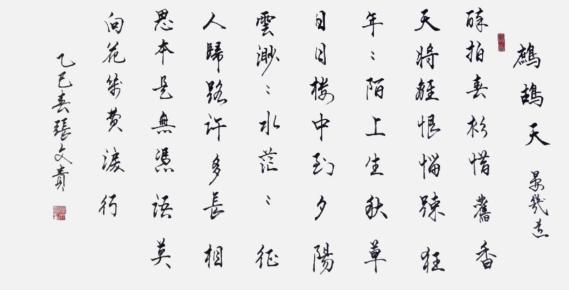 鷓鴣天 晏幾道
醉拍春衫惜舊香
天將離恨惱踈狂
年々陌上生秋草
日日樓中到夕陽
雲渺々水茫々征
人歸路許多長相
思本是無憑語莫
向花箋費淚行
乙巳春張文貴